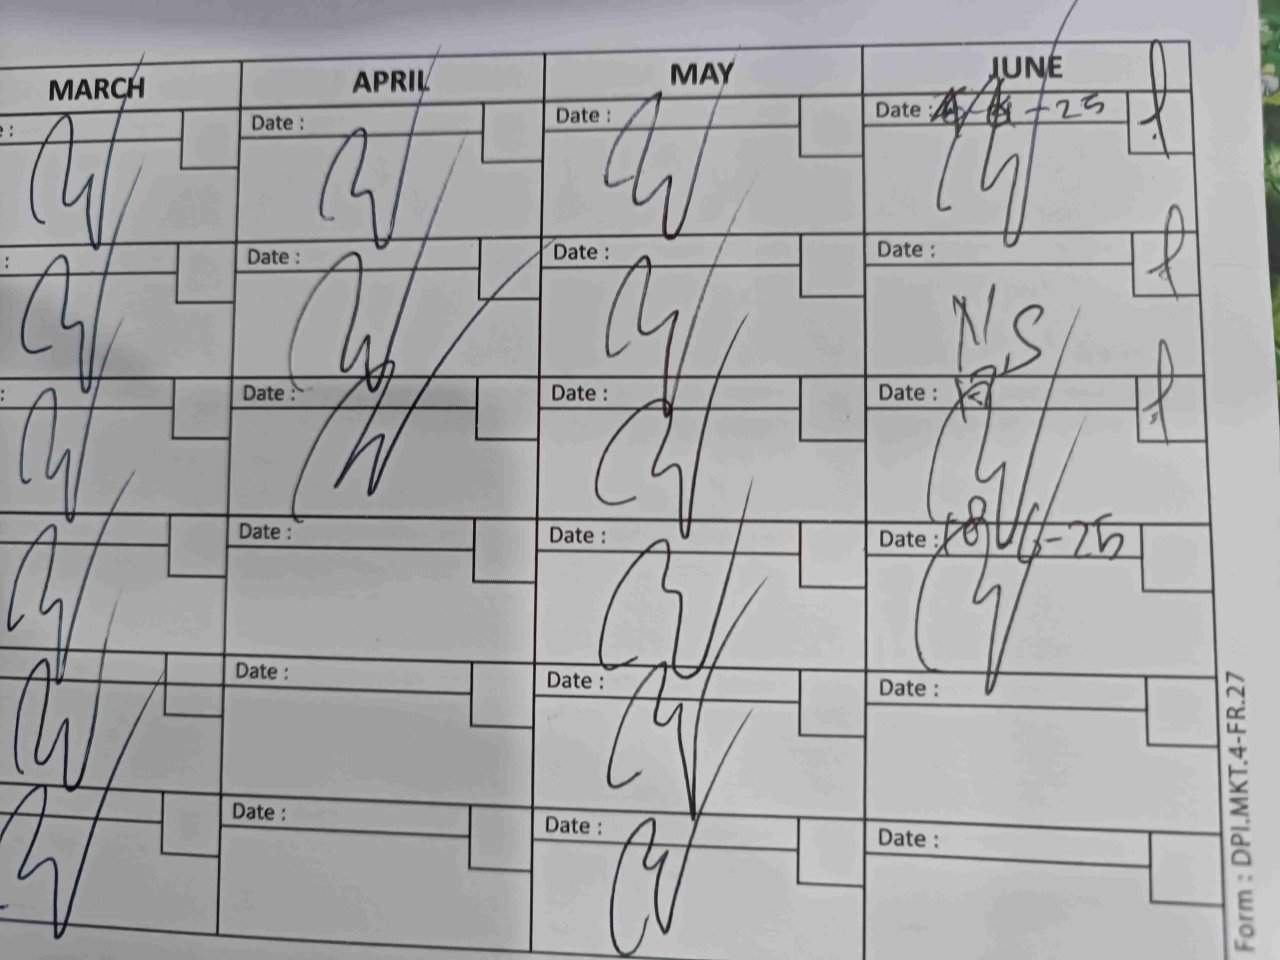 MARCH APRIL MAY JUNE
Date : Date : Date : -25
Date : Date : Date :
N.S
Date : Date : Date :
Date : Date : Date : 18-6-25
Date : Date : Date :
Date : Date : Date :
Form : DPI.MKT.4-FR.27